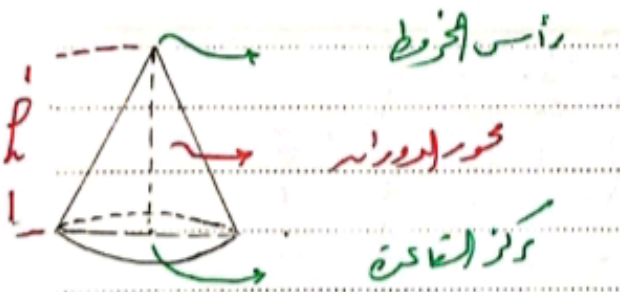 رأس المخروط
h
محور الدوران
مركز القاعدة